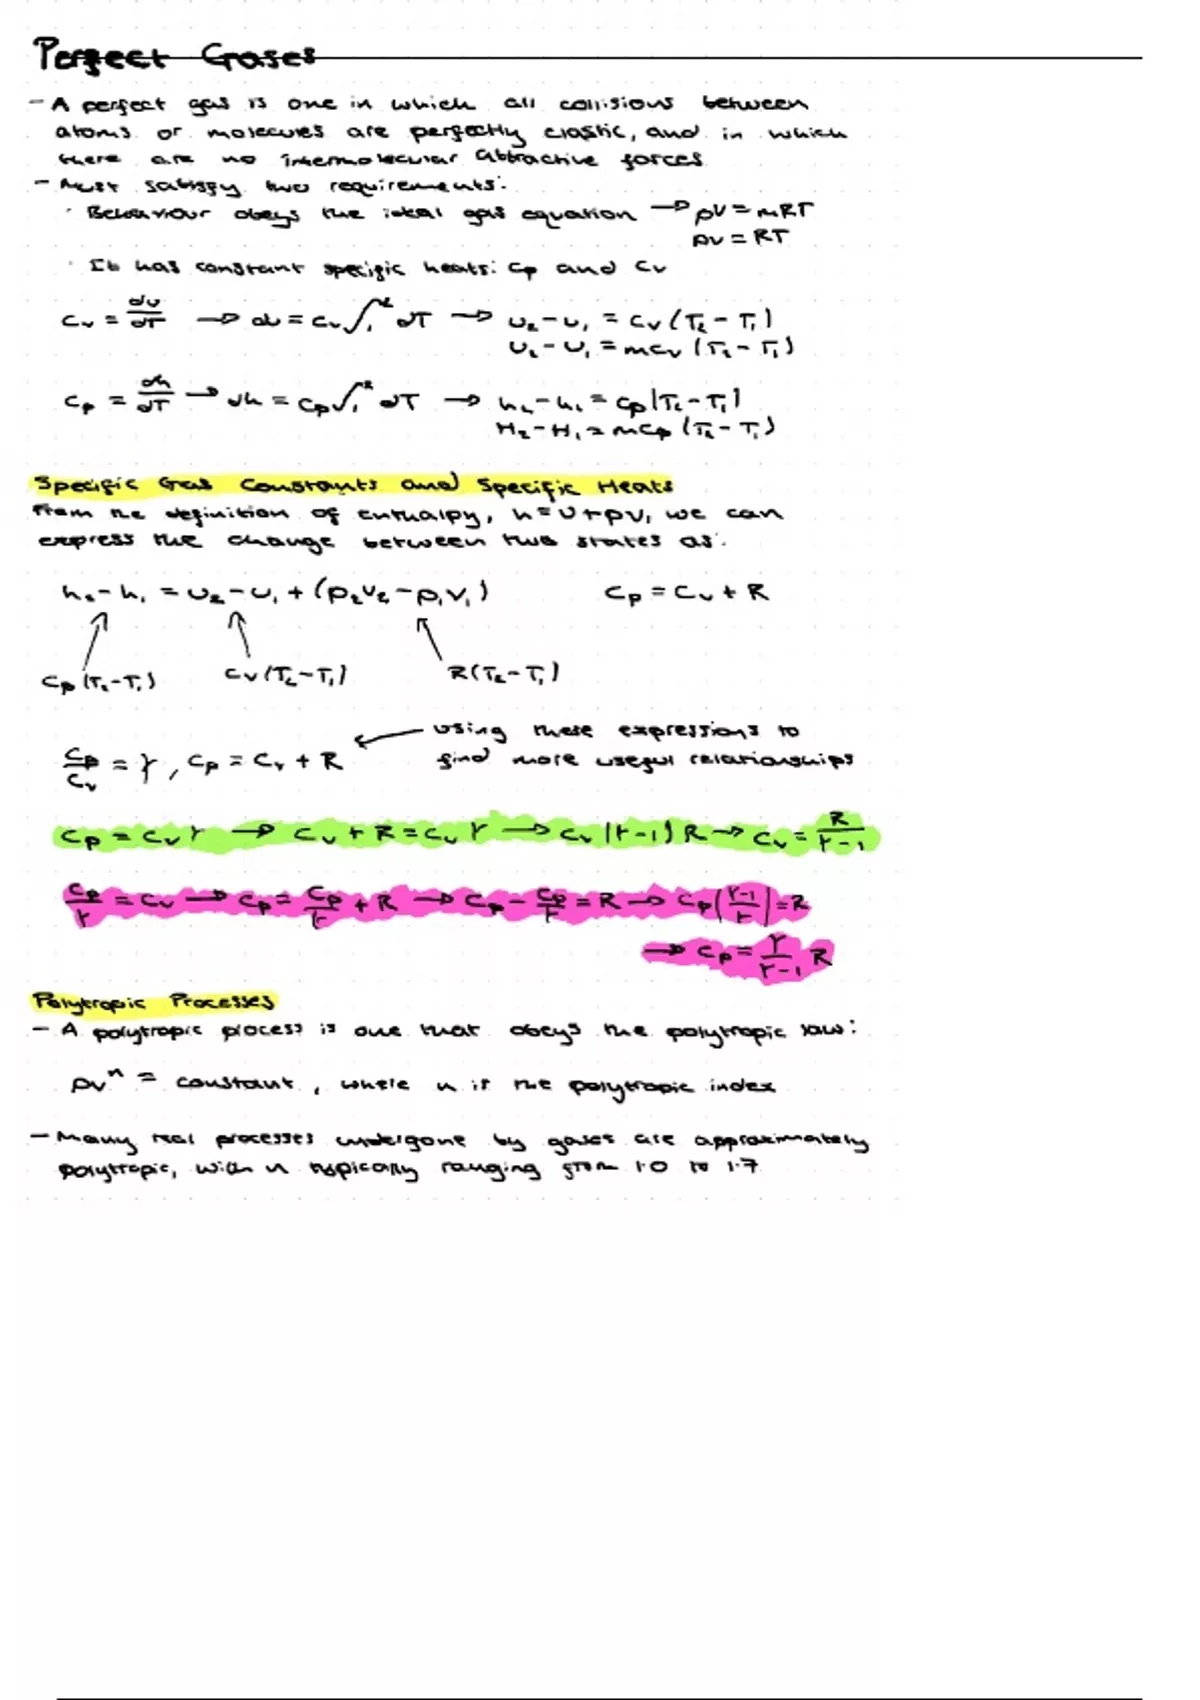 Perfect Gases
- A perfect gas is one in which all collisions between
atoms or molecules are perfectly elastic, and in which
there are no intermolecular attractive forces
- Must satisfy two requirements:
· Behaviour obeys the ideal gas equation → pV = mRT
pv = RT
· It has constant specific heats: Cp and Cv
Cv = du/dT → du = Cv ∫₁² dT → u₂ - u₁ = Cv (T₂ - T₁)
U₂ - U₁ = mCv (T₂ - T₁)
Cp = dh/dT → dh = Cp ∫₁² dT → h₂ - h₁ = Cp (T₂ - T₁)
H₂ - H₁ = mCp (T₂ - T₁)
Specific Gas Constants and Specific Heats
From the definition of enthalpy, h = u + pv, we can
express the change between two states as:
h₂ - h₁ = u₂ - u₁ + (p₂v₂ - p₁v₁) Cp = Cv + R
Cp (T₂ - T₁) Cv (T₂ - T₁) R (T₂ - T₁)
Cp/Cv = γ, Cp = Cv + R ← using these expressions to
find more useful relationships
Cp = Cv γ → Cv + R = Cv γ → Cv (γ - 1) R → Cv = R/(γ - 1)
Cp/γ = Cv → Cp = Cp/γ + R → Cp - Cp/γ = R → Cp ((γ - 1)/γ) = R
→ Cp = γ/(γ - 1) R
Polytropic Processes
- A polytropic process is one that obeys the polytropic law:
pvⁿ = constant, where n is the polytropic index
- Many real processes undergone by gases are approximately
polytropic, with n typically ranging from 1.0 to 1.7